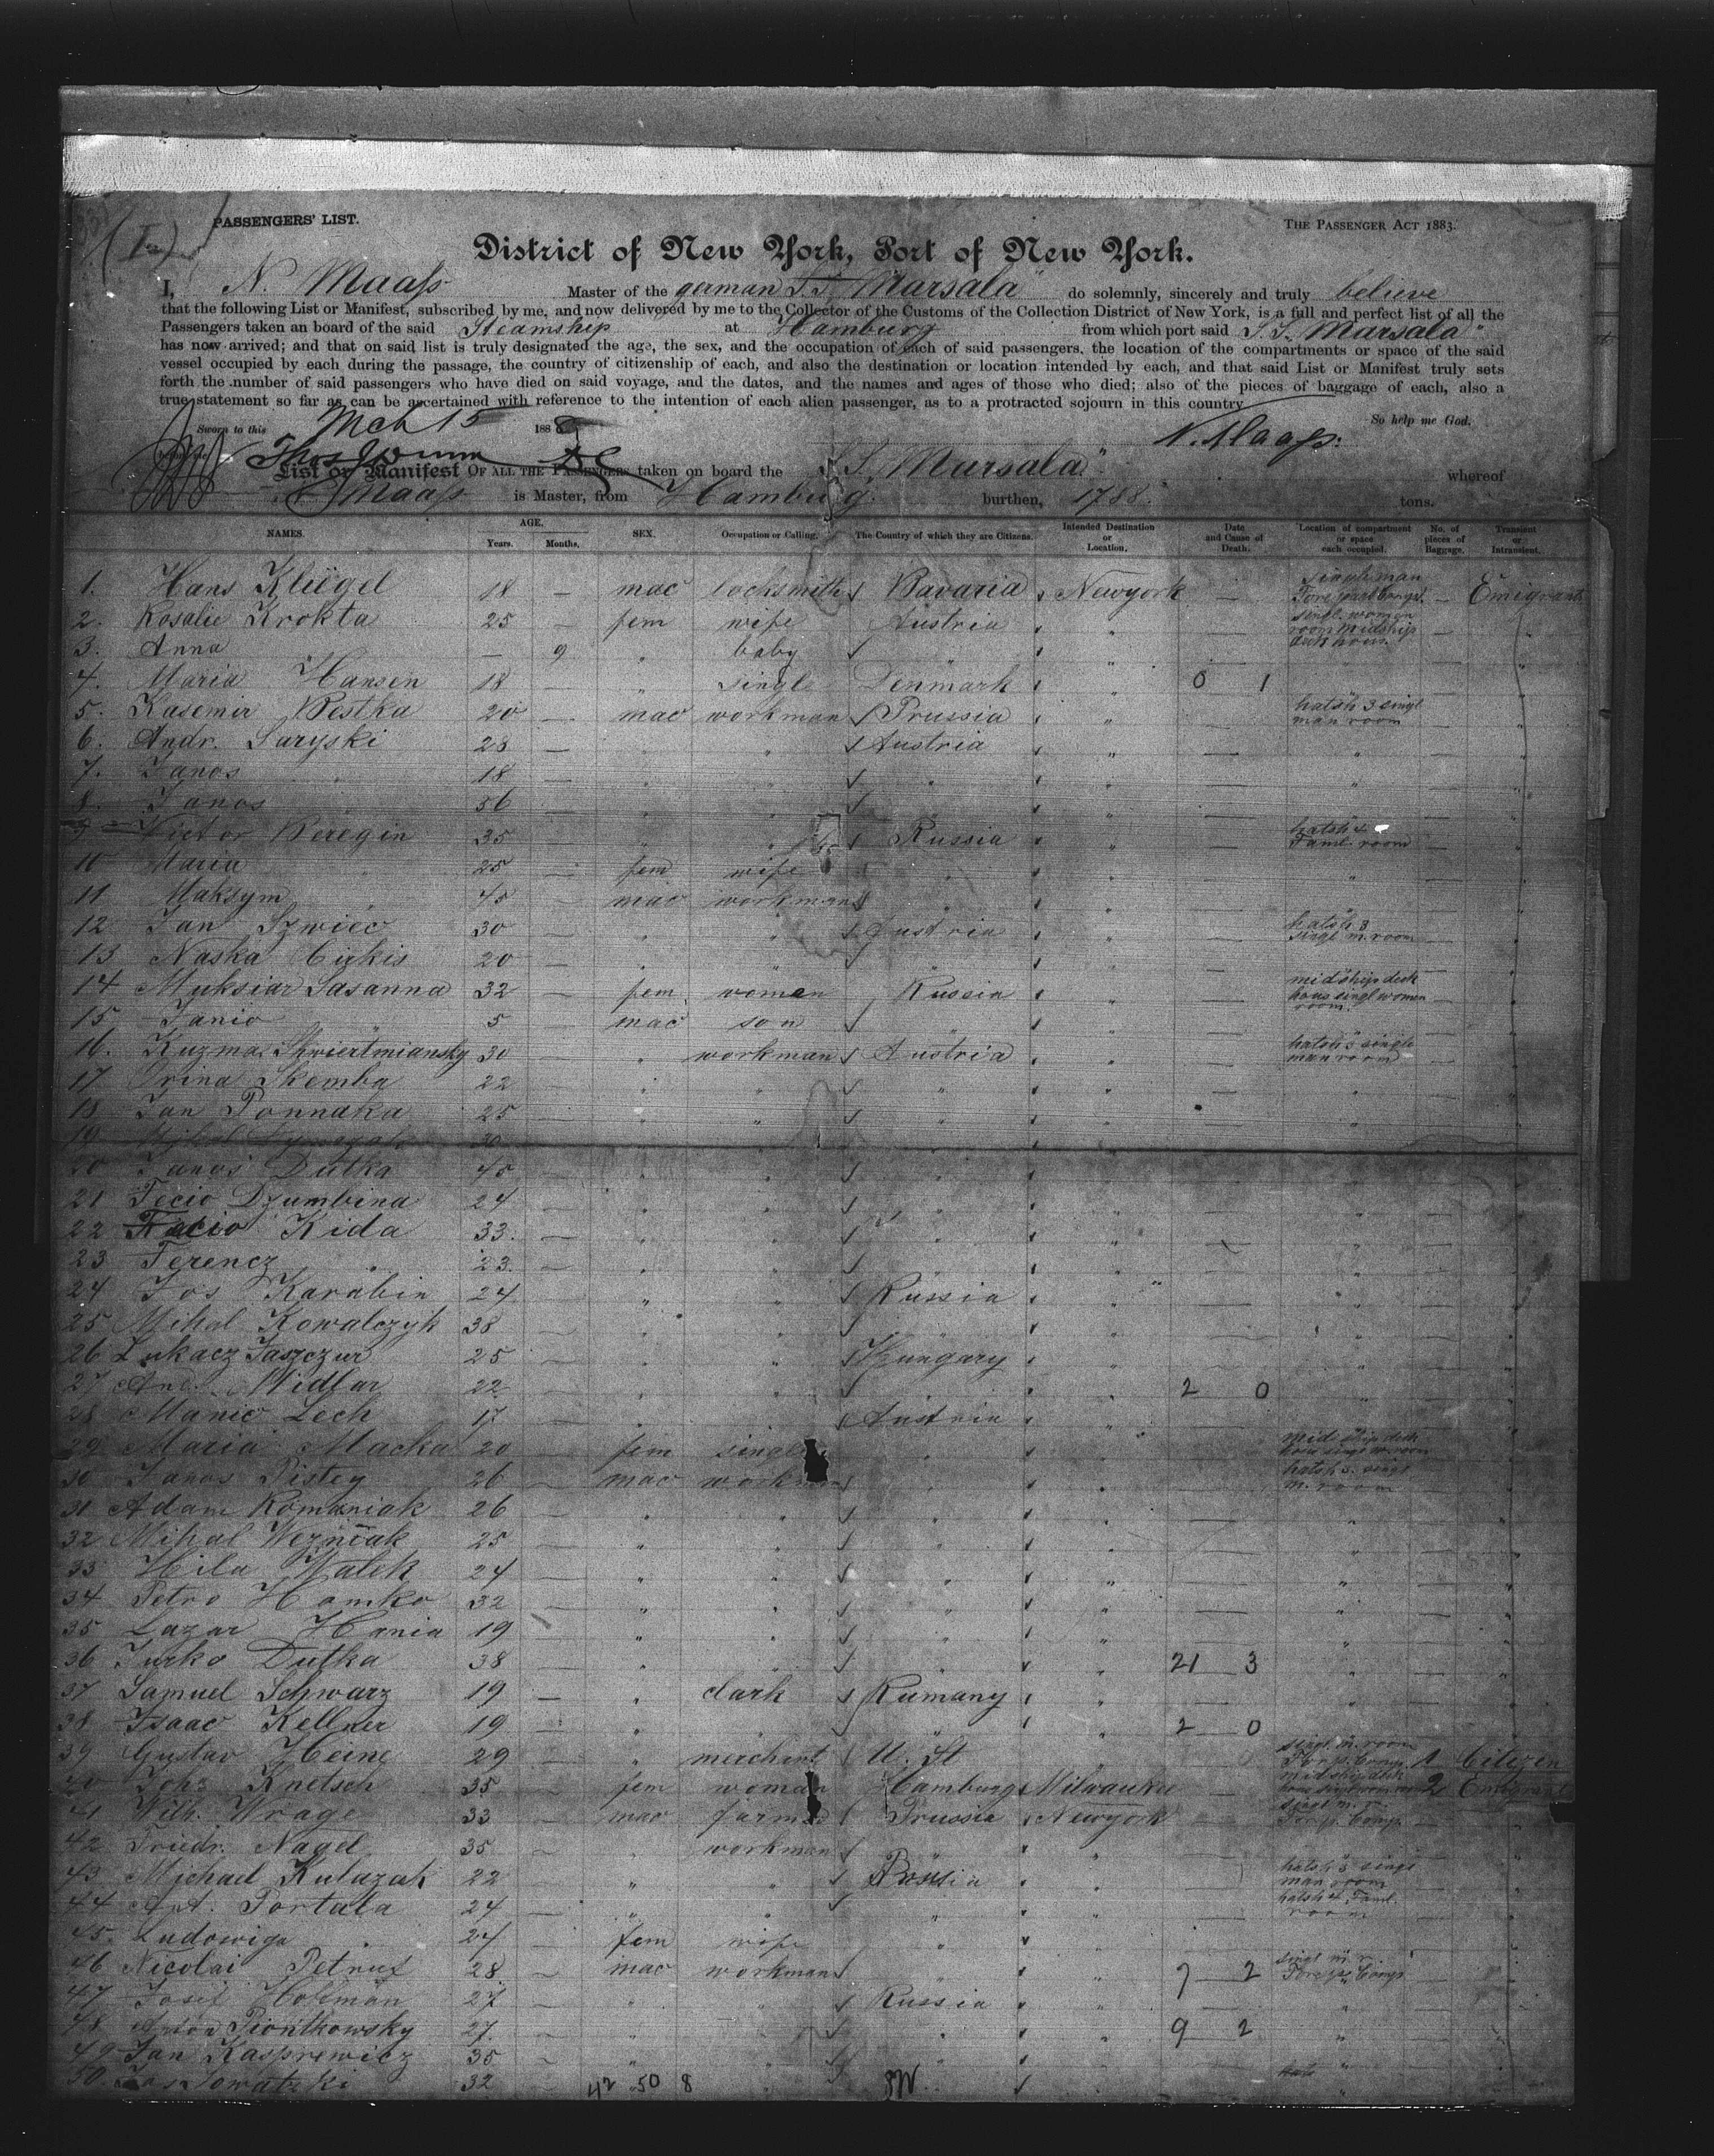 PASSENGERS' LIST.
THE PASSENGER ACT 1883.
District of New York, Port of New York.
I, N. Maass Master of the german S.S. "Marsala" do solemnly, sincerely and truly believe
that the following List or Manifest, subscribed by me, and now delivered by me to the Collector of the Customs of the Collection District of New York, is a full and perfect list of all the
Passengers taken an board of the said Steamship at Hamburg from which port said S.S. "Marsala"
has now arrived; and that on said list is truly designated the age, the sex, and the occupation of each of said passengers, the location of the compartments or space of the said
vessel occupied by each during the passage, the country of citizenship of each, and also the destination or location intended by each, and that said List or Manifest truly sets
forth the number of said passengers who have died on said voyage, and the dates, and the names and ages of those who died; also of the pieces of baggage of each, also a
true statement so far as can be ascertained with reference to the intention of each alien passenger, as to a protracted sojourn in this country
So help me God.
Sworn to this Mch 15 188
N. Maass.
List or Manifest OF ALL THE PASSENGERS taken on board the S.S. "Marsala" whereof
Maass is Master, from Hamburg. burthen, 1788. tons.
NAMES. AGE. Years. Months. SEX. Occupation or Calling. The Country of which they are Citizens. Intended Destination or Location. Date and Cause of Death. Location of compartment or space each occupied. No. of pieces of Baggage. Transient or Intransient.
1. Hans Kliegel 18 — mac locksmith Bavaria Newyork — single man — Emigrant
2. Rosalie Krokta 25 — fem wife Austria " — singl. women room midship deck hous. — "
3. Anna — 9 " baby " "
4. Maria Hansen 18 — " single Denmark " 0 1 "
5. Kasemir Bestka 20 — mac workman Prussia " — hatsh 3 singl man room — "
6. Andr. Saryski 28 — " " Austria " — " — "
7. Janos " 18 — " " " " — " — "
8. Janos " 56 — " " " " — " — "
9 Victor Beregin 35 — " " Russia " — hatsh 4 Faml. room — "
10 Maria 25 — fem wife " " — " — "
11 Maksym 45 — mac workman " " — " — "
12 Jan Szwiec 30 — " " Austria " — hatsh 3 singl m. room — "
13 Naska Cizkis 20 — " " " " — " — "
14 Muksiar Sasanna 32 — fem women Russia " — midship deck hous singl women room. — "
15 Janio " 5 — mac son " " — " — "
16. Kuzma Skwiertmiansky 30 — " workman Austria " — hatsh 3 single man room — "
17 Orina Skemba 22 — " " " " — " — "
18 Jan Ponnaka 25 — " " " " — " — "
19 Mihal 30
20 Janos Dutka 45 — " " " " — " — "
21 Fecio Dzumbina 24 — " " " " — " — "
22 Facio Kida 33. — " " " " — " — "
23 Ferencz " 23. — " " " " — " — "
24 Jos Karabin 24 — " " Russia " — " — "
25 Mihal Kowalczyk 38 — " " " " — " — "
26 Lukacz Jaszczur 25 — " " Hungary " — " — "
27 And. Widlar 22 — " " " " 2 0 " — "
28 Manio Lech 17 — " " Austria " — " — "
29 Maria Macka 20 — fem single " " — midship deck — "
30 Janos Pistey 26 — mac workman " " — hatsh 3. singl m. room — "
31 Adam Romaniak 26 — " " " " — " — "
32 Mihal Wezniak 25 — " " " " — " — "
33 Hila Watek 24 — " " " " — " — "
34 Petro Homko 32 — " " " " — " — "
35 Lazar Hania 19 — " " " " — " — "
36 Jurko Dutka 38 — " " " " 21 3 " — "
37 Samuel Schwarz 19 — " clark Rumany " — " — "
38 Isaac Kellner 19 — " " " " 2 0 " — "
39 Gustav Heine 29 — " merchant U. St " singl. m. room 1 Citizen
40 Knetsch 35 — fem woman Hamburg Milwaukee — midship deck 2 Emigrant
41 Wilh. Wrage 33 — mac farmer Prussia Newyork — singl m. r. — "
42 Friedr. Nagel 35 — " workman " " — " — "
43 Michael Kulazak 22 — " " Russia " — hatsh 3 singl man room — "
44 Ant. Portala 24 — " " " " — hatsh 4 Faml. room — "
45. Ludowiga " 24 — fem wife " " — " — "
46 Nicolai Petrus 28 — mac workman " " 7 2 singl m. r. — "
47 Josif Hofman 27 — " " Russia " — " — "
48 Anton Piontkowsky 27. — " " " " 9 2 " — "
49 Jan Kasprewicz 35 — " " " " — " — "
50. 32 — " " " " — " — "
42 50 8